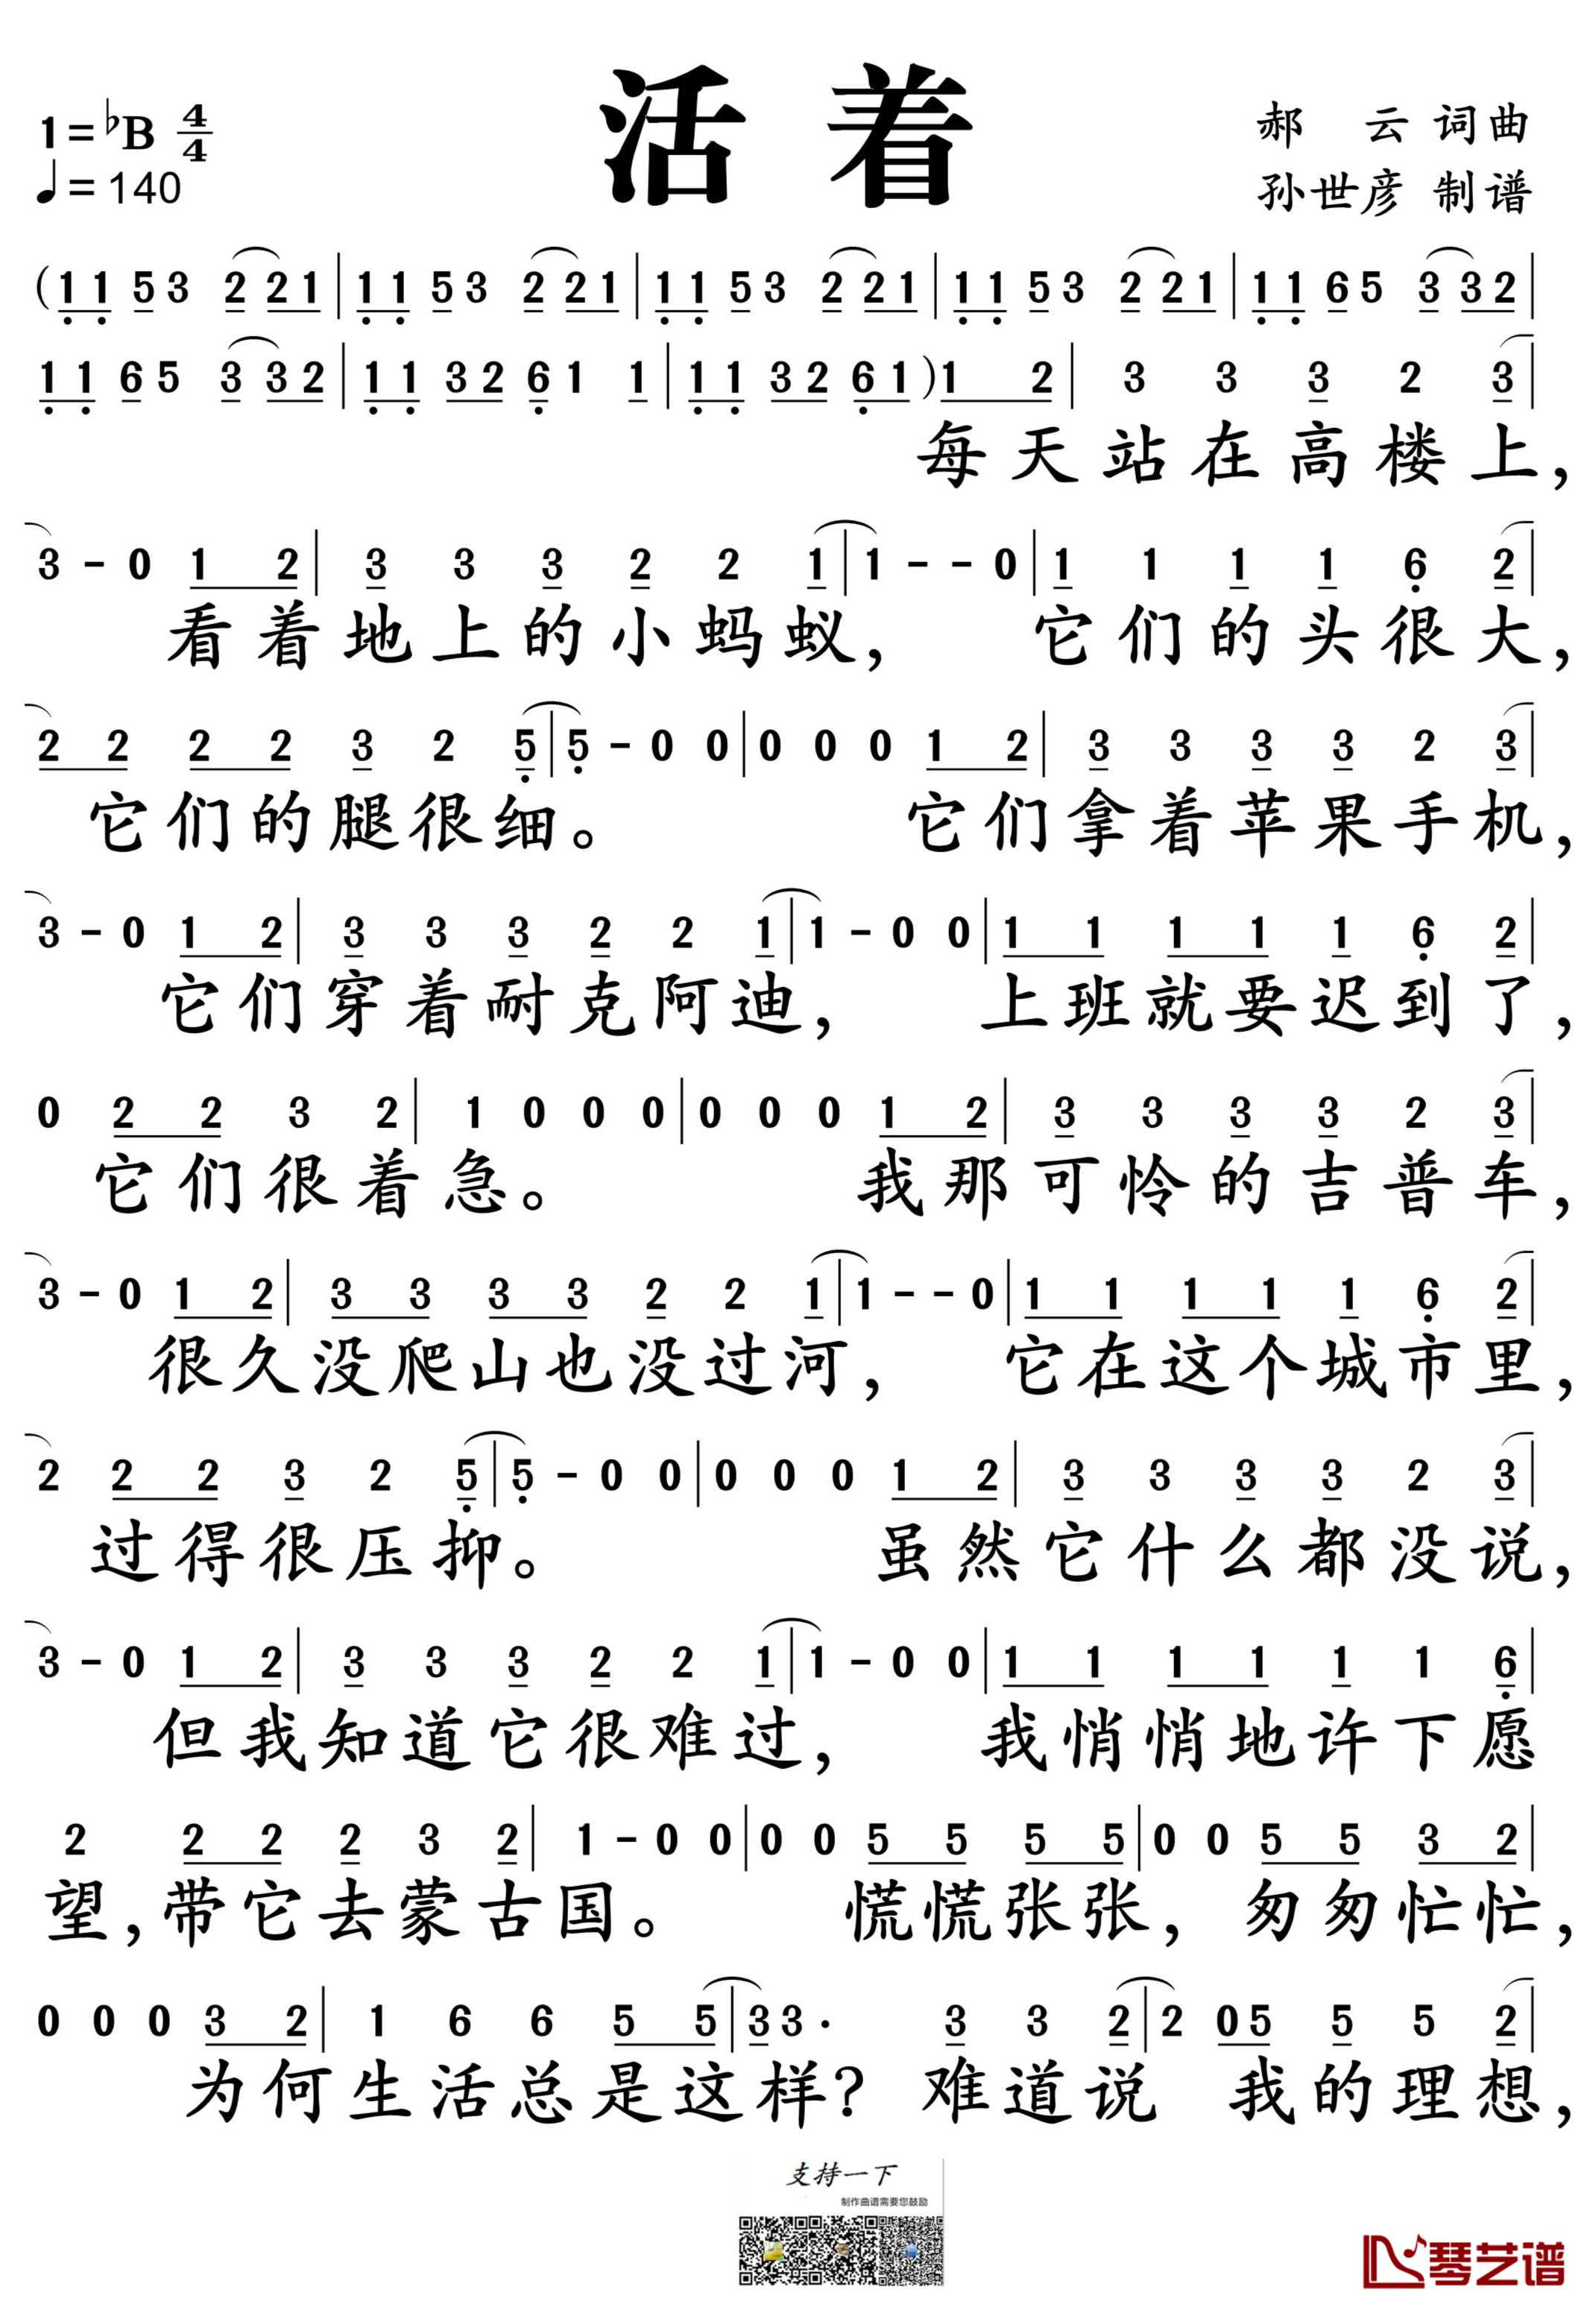 活着
1=♭B 4/4
♩=140
郝 云 词曲
孙世彦 制谱
(11 53 2 21|11 53 2 21|11 53 2 21|11 53 2 21|11 65 3 32|
11 65 3 32|11 32 6 1 1|11 32 6 1)1 2|3 3 3 2 3|
每天站在高楼上，
3 - 0 1 2|3 3 3 2 2 1|1 - - 0|1 1 1 1 6 2|
看着地上的小蚂蚁， 它们的头很大，
2 2 2 2 3 2 5|5 - 0 0|0 0 0 1 2|3 3 3 3 2 3|
它们的腿很细。 它们拿着苹果手机，
3 - 0 1 2|3 3 3 2 2 1|1 - 0 0|1 1 1 1 1 6 2|
它们穿着耐克阿迪， 上班就要迟到了，
0 2 2 3 2|1 0 0 0|0 0 0 1 2|3 3 3 3 2 3|
它们很着急。 我那可怜的吉普车，
3 - 0 1 2|3 3 3 3 2 2 1|1 - - 0|1 1 1 1 1 6 2|
很久没爬山也没过河， 它在这个城市里，
2 2 2 3 2 5|5 - 0 0|0 0 0 1 2|3 3 3 3 2 3|
过得很压抑。 虽然它什么都没说，
3 - 0 1 2|3 3 3 2 2 1|1 - 0 0|1 1 1 1 1 1 6|
但我知道它很难过， 我悄悄地许下愿
2 2 2 2 3 2|1 - 0 0|0 0 5 5 5 5|0 0 5 5 3 2|
望，带它去蒙古国。 慌慌张张，匆匆忙忙，
0 0 0 3 2|1 6 6 5 5|3 3· 3 3 2|2 05 5 5 2|
为何生活总是这样？ 难道说 我的理想，
支持一下
制作曲谱需要您鼓励
琴艺谱